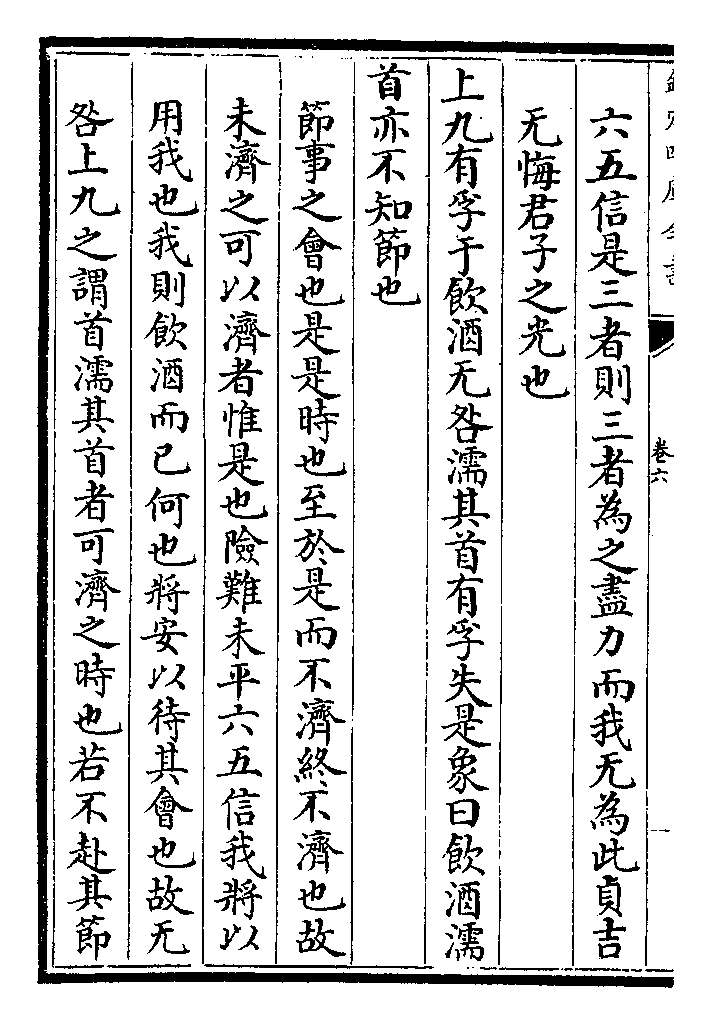 欽定四庫全書
卷六
六五信是三者則三者為之盡力而我无為此貞吉
无悔君子之光也
上九有孚于飲酒无咎濡其首有孚失是象曰飲酒濡
首亦不知節也
節事之會也是是時也至於是而不濟終不濟也故
未濟之可以濟者惟是也險難未平六五信我將以
用我也我則飲酒而已何也將安以待其會也故无
咎上九之謂首濡其首者可濟之時也若不赴其節